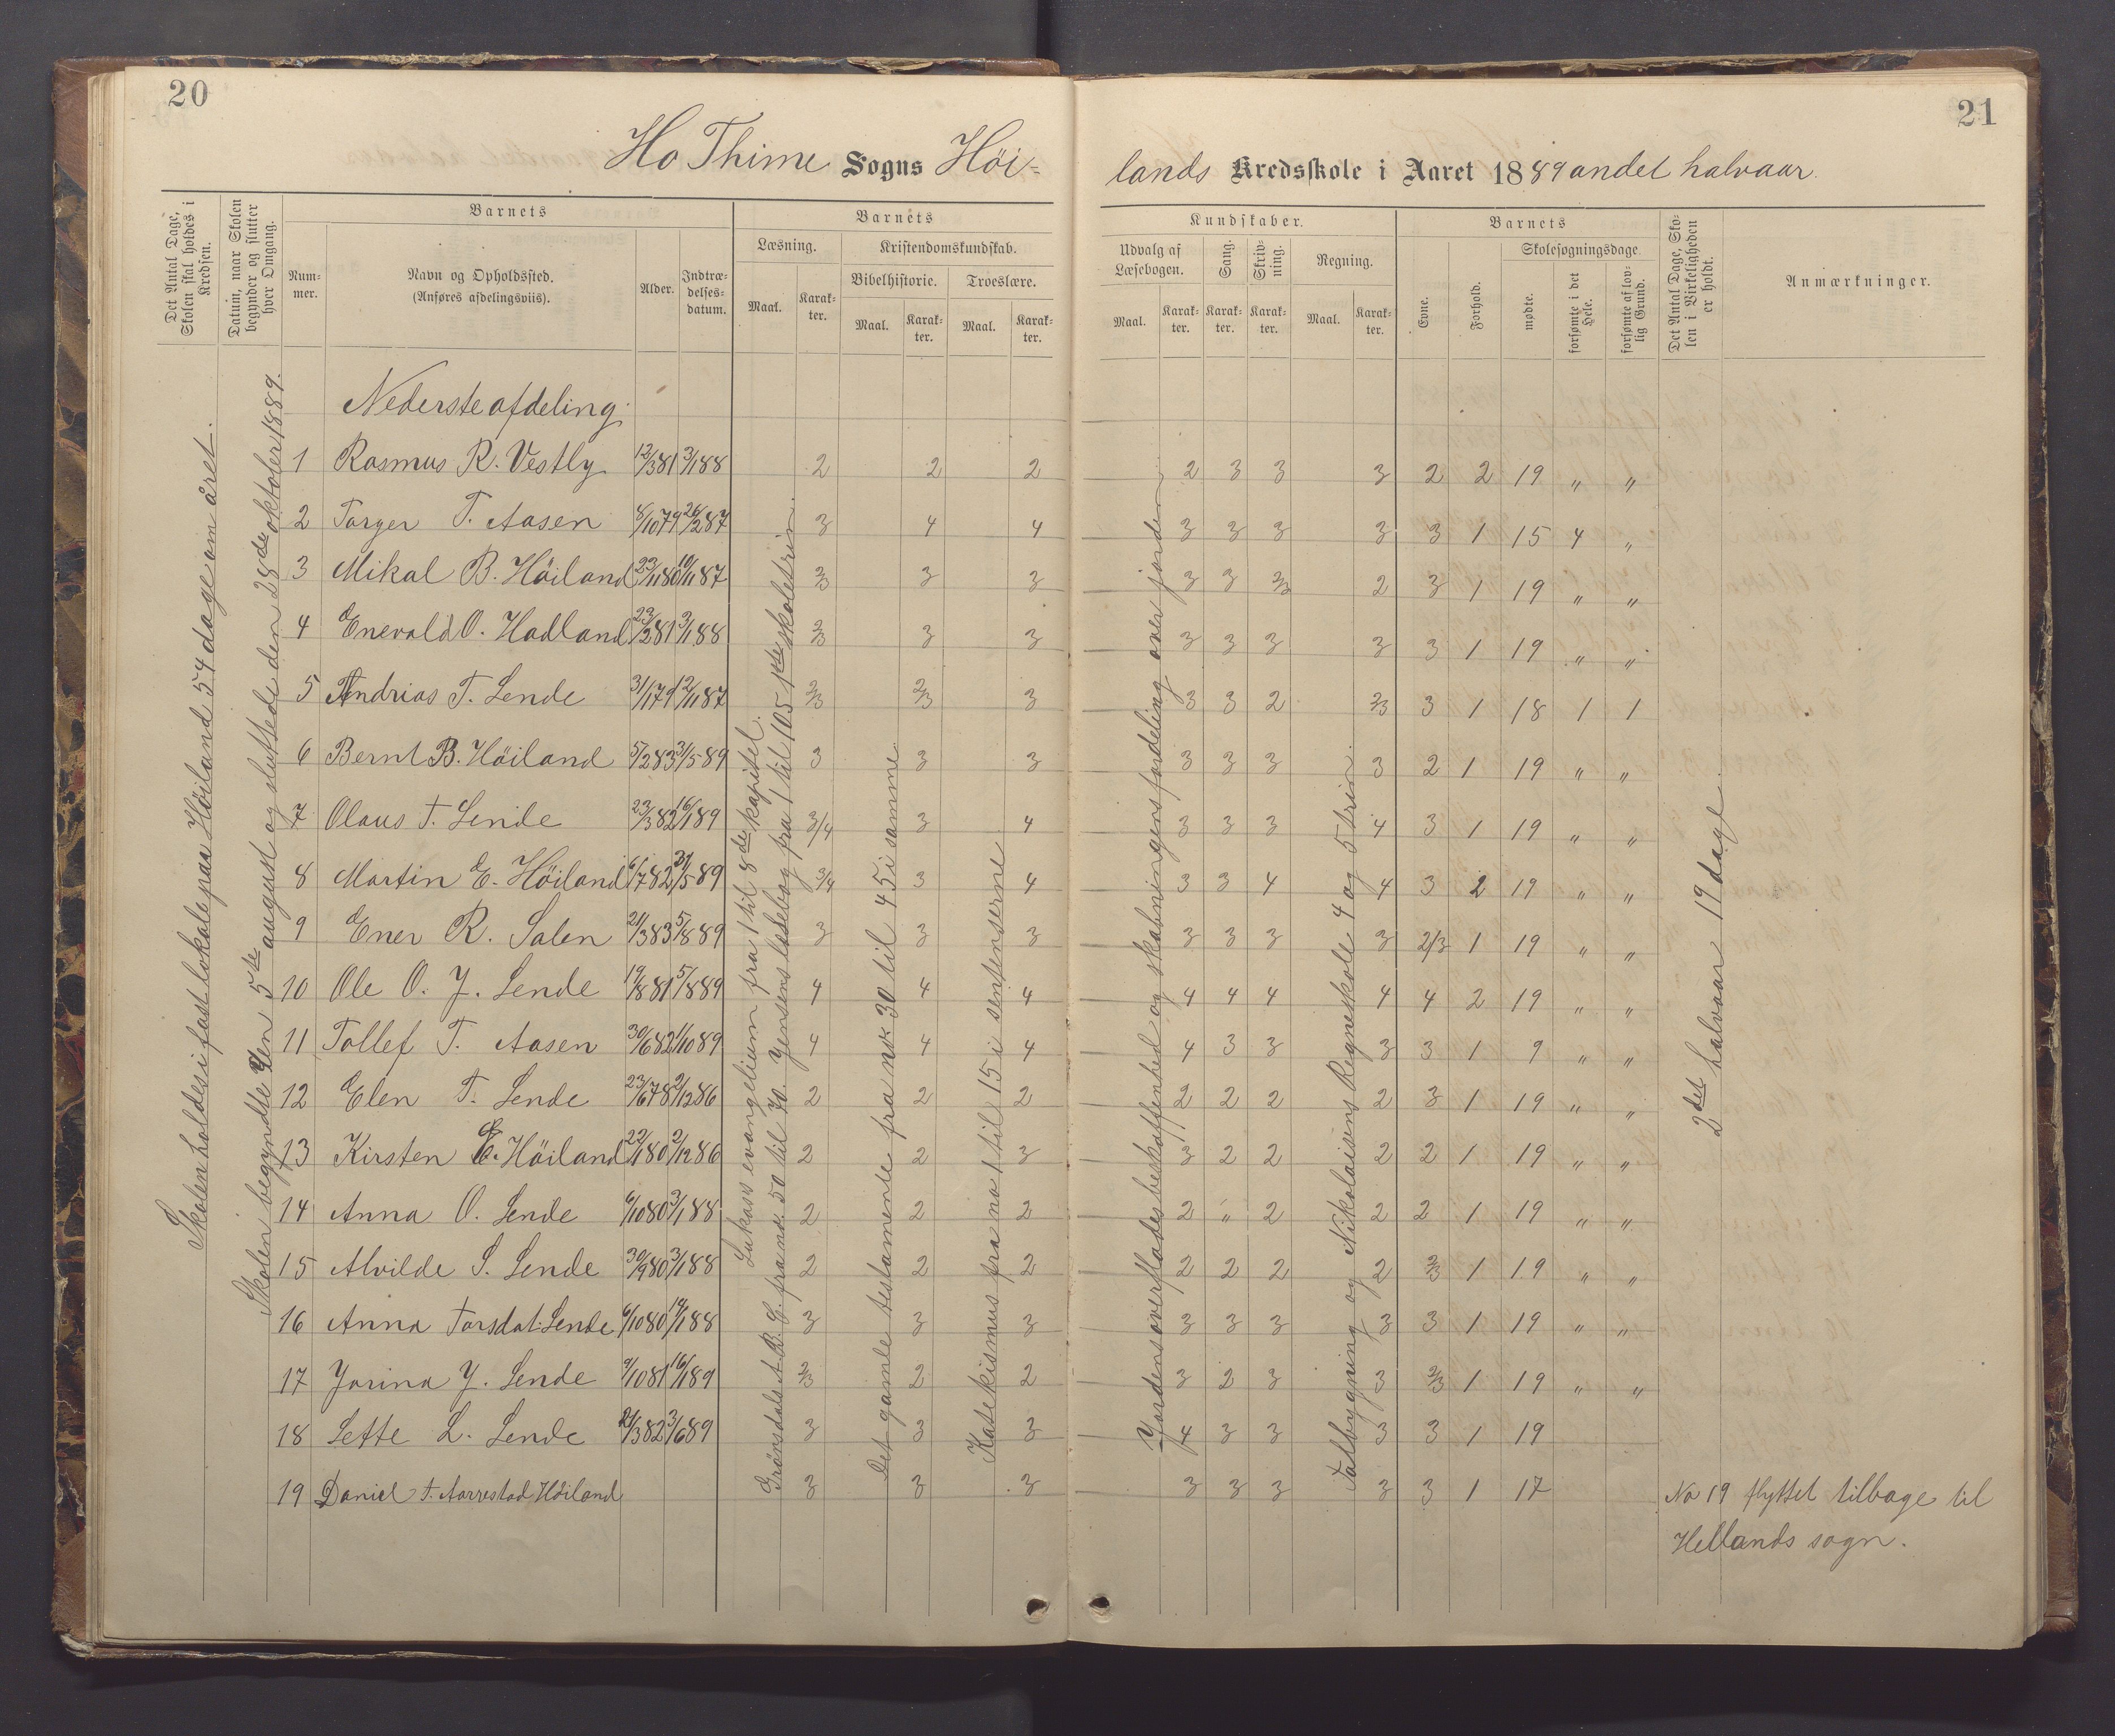 20
21
Ho Thime Sogns Höi-
lands Kredsskole i Aaret 1889 andet halvaar.
Det Antal Dage, Skolen skal holdes i Kredsen.
Datum, naar Skolen begynder og slutter hver Omgang.
Barnets
Num-mer.
Navn og Opholdssted.
(Anføres afdelingsviis).
Alder.
Indtræ-delses-datum.
Barnets
Læsning.
Maal.
Karak-ter.
Kristendomskundskab.
Bibelhistorie.
Maal.
Karak-ter.
Troeslære.
Maal.
Karak-ter.
Kundskaber.
Udvalg af Læsebogen.
Maal.
Karak-ter.
Sang.
Karak-ter.
Skriv-ning.
Karak-ter.
Regning.
Maal.
Karak-ter.
Barnets
Evne.
Forhold.
Skolesøgningsdage.
mødte.
forsømte i det Hele.
forsømte af lov-lig Grund.
Det Antal Dage, Sko-len i Virkeligheden er holdt.
Anmærkninger.
Skolen holdes i fast lokale paa Höiland 54 dage om året.
Skolen begyndte den 5te august og sluttede den 28de oktober 1889.
Lukas's evangelium fra 1 til 8de kapitel.
Grönsdals A.B.C. fra nr. 50 til 70. Jensens læsebog fra 1 til 105 1ste skoletrin.
Det gamle testamente fra nr. 30 til 45 i samme
Katekismus fra no 1 til 15 i sentenserne
Jordens overflades beskaffenhed og skabningens fordeling over jorden
Talbygning og Nikolaisens Regneskole 4 og 5 trin.
2det halvaar 19 dage
Nederste afdeling.
1 Rasmus R. Vestly 12/3 81 3/1 88 2 2 2 2 3 3 3 2 2 19 " "
2 Torger T. Aasen 8/10 79 26/2 87 3 4 4 3 3 3 3 3 1 15 4 "
3 Mikal B. Höiland 23/11 80 10/1 87 2/3 3 3 3 3 2/3 2 3 1 19 " "
4 Enevald O. Hadland 23/2 81 3/1 88 2/3 3 3 3 3 3 3 3 1 19 " "
5 Andrias T. Lende 31/1 79 12/1 87 2/3 2/3 3 3 3 2 2/3 3 1 18 1 1
6 Bernt B. Höiland 5/2 83 31/5 89 3 3 3 3 3 3 3 2 1 19 " "
7 Olaus T. Lende 23/3 82 16/1 89 3/4 3 4 3 3 3 4 3 1 19 " "
8 Martin E. Höiland 6/7 82 31/5 89 3/4 3 4 3 3 4 4 3 2 19 " "
9 Ener R. Salen 21/3 83 5/8 89 3 3 3 3 3 3 3 2/3 1 19 " "
10 Ole O. J. Lende 19/8 81 5/8 89 4 4 4 4 4 4 4 4 2 19 " "
11 Tollef T. Aasen 30/6 82 1/10 89 4 4 4 4 3 3 3 3 1 9 " "
12 Elen T. Lende 23/6 78 2/12 86 2 2 2 2 2 2 2 3 1 19 " "
13 Kirsten E. Höiland 22/1 80 2/12 86 2 2 3 3 2 2 2 2 1 19 " "
14 Anna O. Lende 6/10 80 3/1 88 2 2 2 2 " 2 2 2 1 19 " "
15 Alvilde S. Lende 30/9 80 3/1 88 2 2 2 2 2 2 2 2/3 1 19 " "
16 Anna Torsdat. Lende 6/10 80 14/1 88 3 3 3 3 3 3 3 3 1 19 " "
17 Jorina J. Lende 9/10 81 16/1 89 2/3 2 2 3 2 3 3 2/3 1 19 " "
18 Lette L. Lende 21/3 82 3/6 89 3 3 3 4 3 3 3 3 1 19
19 Daniel T. Aarrestad Höiland 3 3 3 3 3 3 3 3 1 17 No 19 flyttet tilbage til
Hellands sogn.